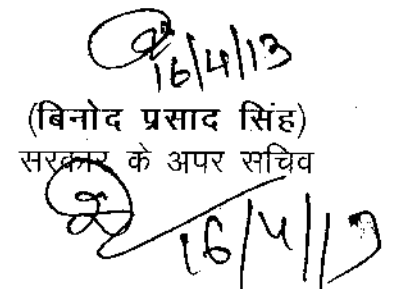 16/4/13
(बिनोद प्रसाद सिंह)
सरकार के अपर सचिव
16/4/13